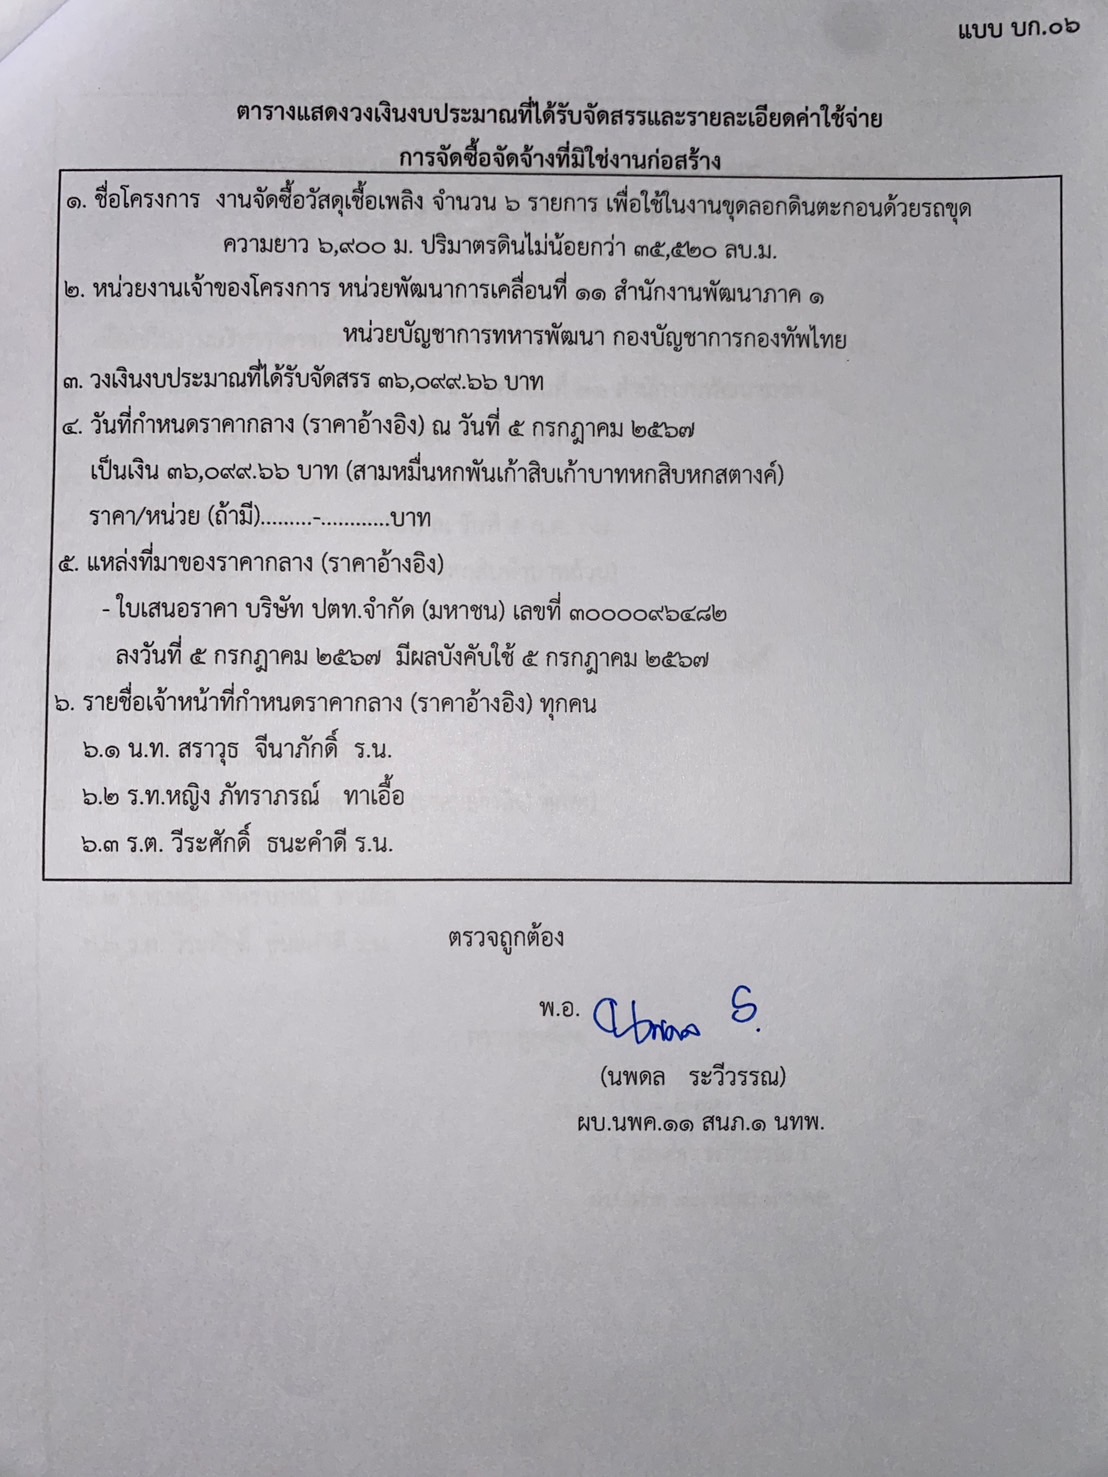 แบบ บก.๐๖
ตารางแสดงวงเงินงบประมาณที่ได้รับจัดสรรและรายละเอียดค่าใช้จ่าย
การจัดซื้อจัดจ้างที่มิใช่งานก่อสร้าง
๑. ชื่อโครงการ งานจัดซื้อวัสดุเชื้อเพลิง จำนวน ๖ รายการ เพื่อใช้ในงานขุดลอกดินตะกอนด้วยรถขุด
ความยาว ๖,๙๐๐ ม. ปริมาตรดินไม่น้อยกว่า ๓๕,๕๒๐ ลบ.ม.
๒. หน่วยงานเจ้าของโครงการ หน่วยพัฒนาการเคลื่อนที่ ๑๑ สำนักงานพัฒนาภาค ๑
หน่วยบัญชาการทหารพัฒนา กองบัญชาการกองทัพไทย
๓. วงเงินงบประมาณที่ได้รับจัดสรร ๓๖,๐๙๙.๖๖ บาท
๔. วันที่กำหนดราคากลาง (ราคาอ้างอิง) ณ วันที่ ๕ กรกฎาคม ๒๕๖๗
เป็นเงิน ๓๖,๐๙๙.๖๖ บาท (สามหมื่นหกพันเก้าสิบเก้าบาทหกสิบหกสตางค์)
ราคา/หน่วย (ถ้ามี).........-............บาท
๕. แหล่งที่มาของราคากลาง (ราคาอ้างอิง)
- ใบเสนอราคา บริษัท ปตท.จำกัด (มหาชน) เลขที่ ๓๐๐๐๐๙๖๔๘๒
ลงวันที่ ๕ กรกฎาคม ๒๕๖๗ มีผลบังคับใช้ ๕ กรกฎาคม ๒๕๖๗
๖. รายชื่อเจ้าหน้าที่กำหนดราคากลาง (ราคาอ้างอิง) ทุกคน
๖.๑ น.ท. สราวุธ จีนาภักดิ์ ร.น.
๖.๒ ร.ท.หญิง ภัทราภรณ์ ทาเอื้อ
๖.๓ ร.ต. วีระศักดิ์ ธนะคำดี ร.น.
ตรวจถูกต้อง
พ.อ. นพดล ร.
(นพดล ระวีวรรณ)
ผบ.นพค.๑๑ สนภ.๑ นทพ.